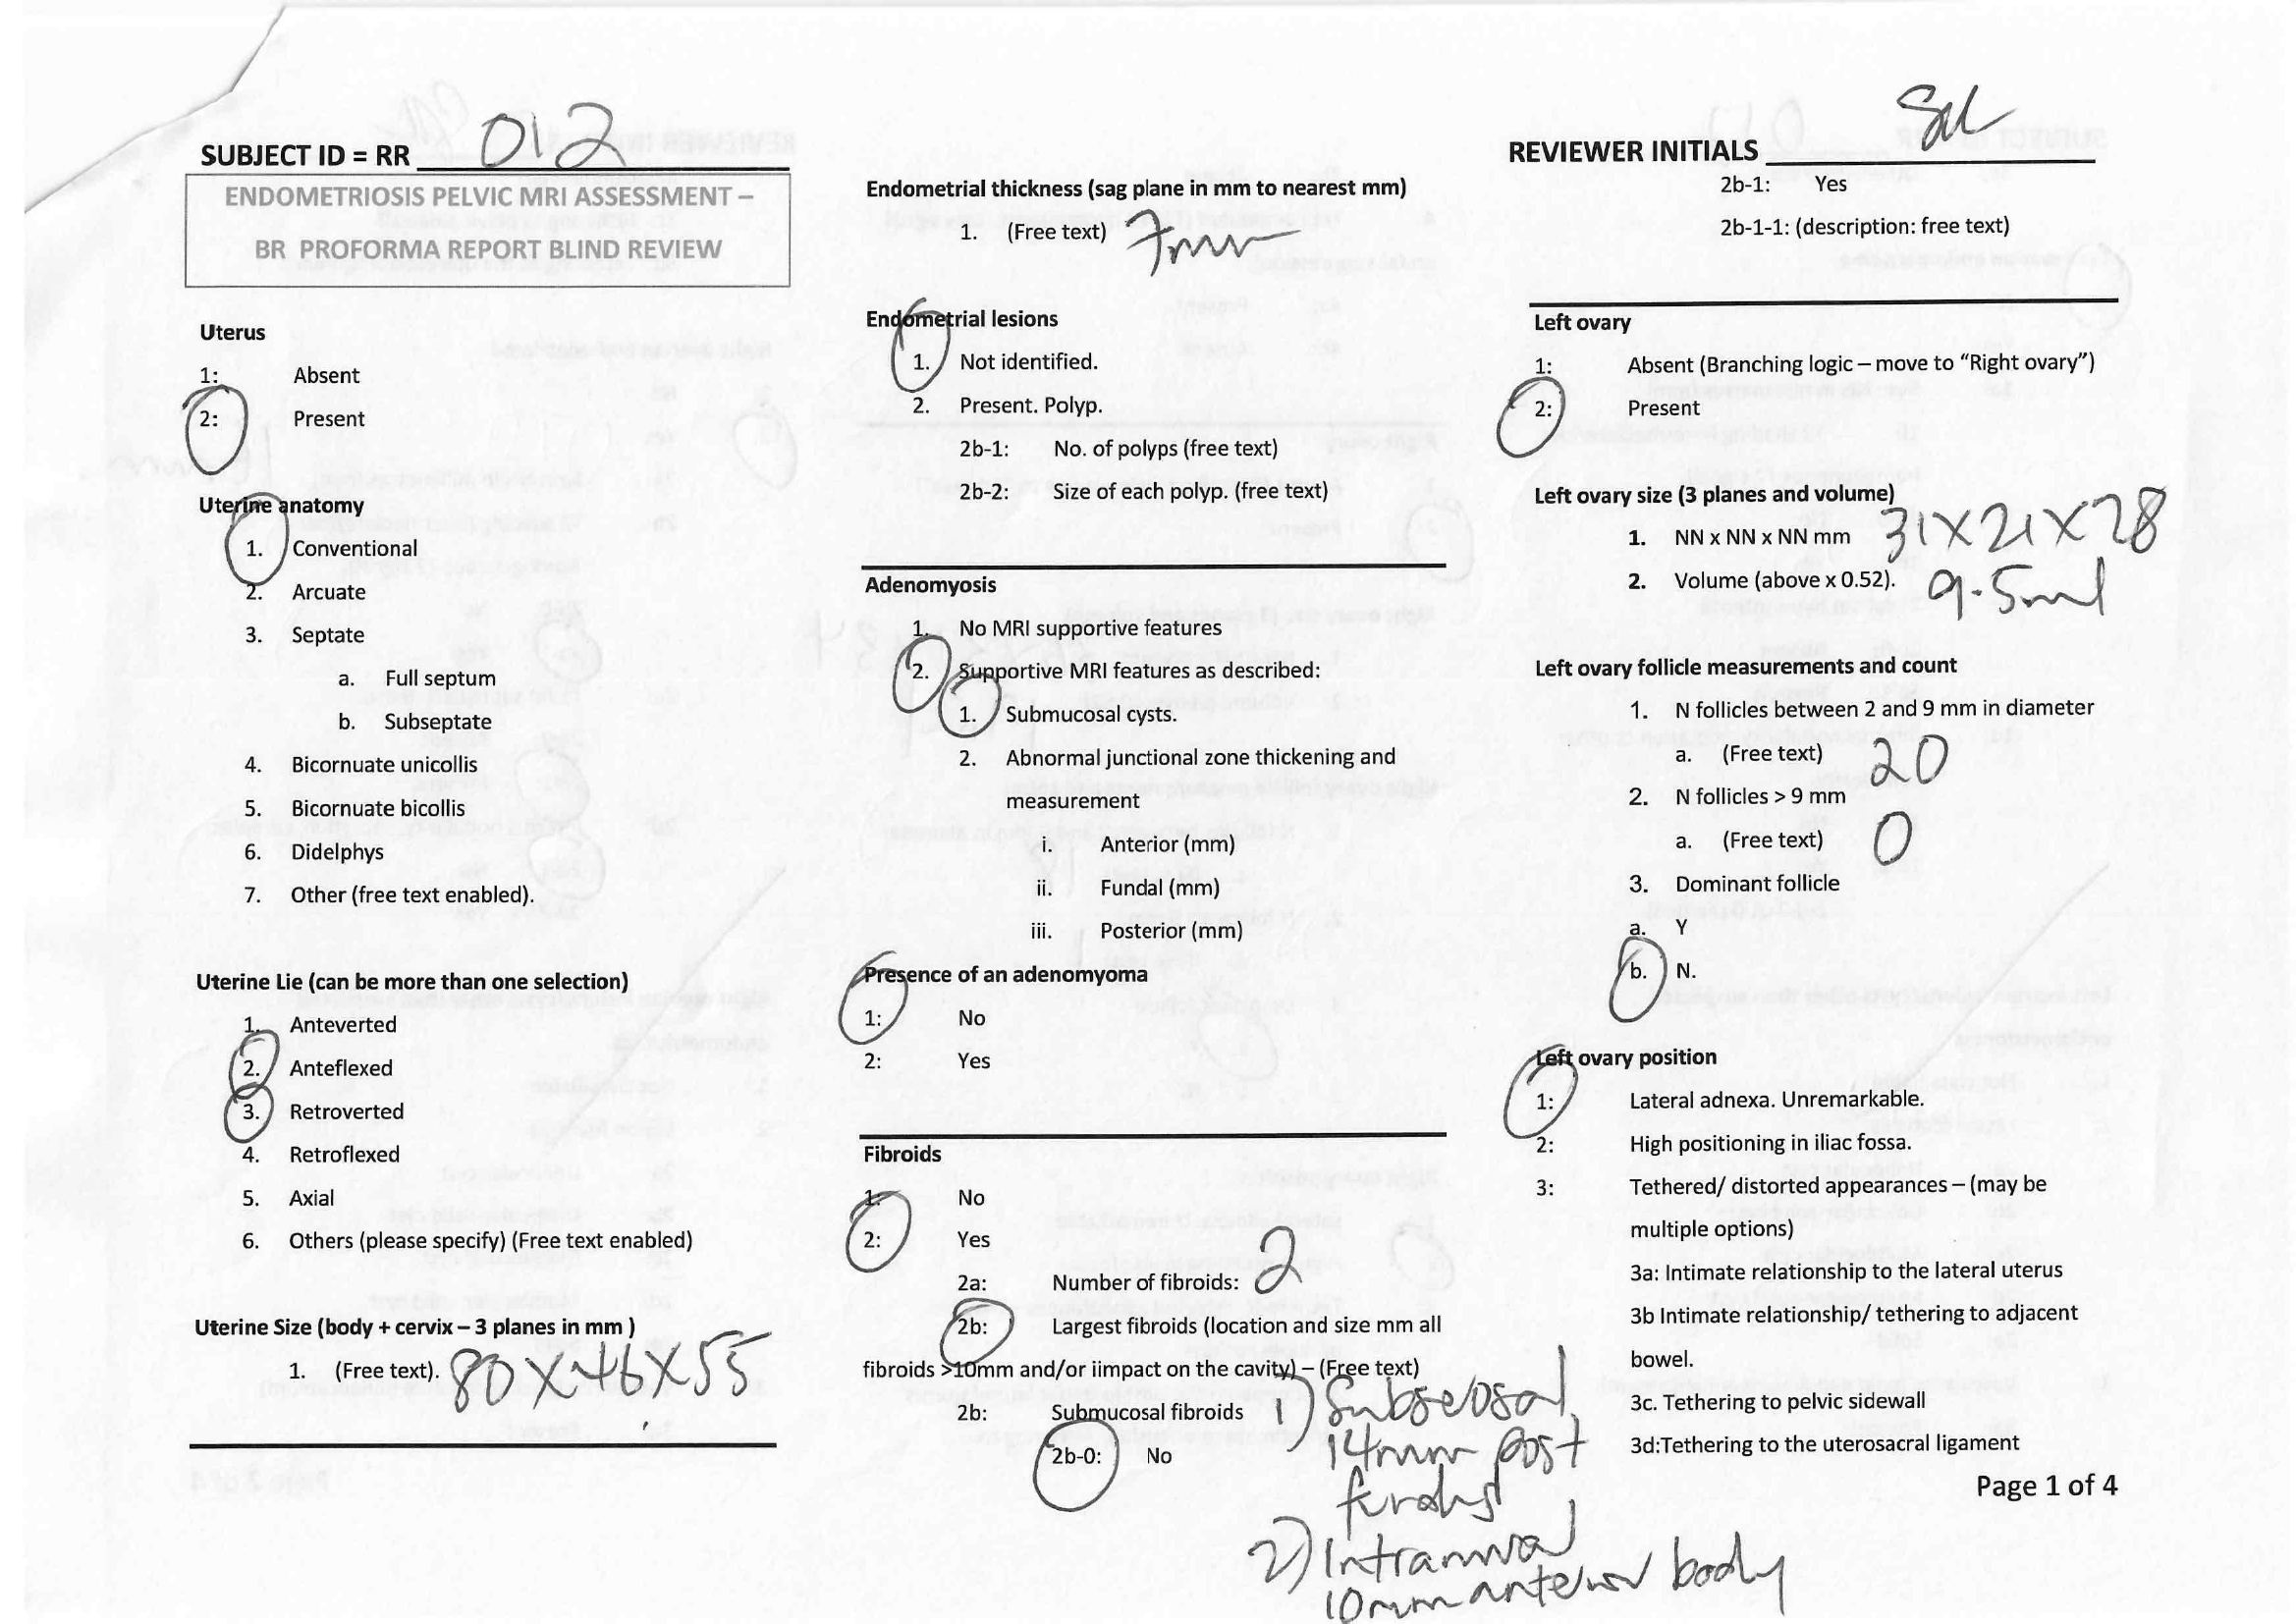 SUBJECT ID = RR 012
ENDOMETRIOSIS PELVIC MRI ASSESSMENT –
BR PROFORMA REPORT BLIND REVIEW
Uterus
1: Absent
2: Present
Uterine anatomy
1. Conventional
2. Arcuate
3. Septate
a. Full septum
b. Subseptate
4. Bicornuate unicollis
5. Bicornuate bicollis
6. Didelphys
7. Other (free text enabled).
Uterine Lie (can be more than one selection)
1. Anteverted
2. Anteflexed
3. Retroverted
4. Retroflexed
5. Axial
6. Others (please specify) (Free text enabled)
Uterine Size (body + cervix – 3 planes in mm )
1. (Free text). 80 X 46 X 55
Endometrial thickness (sag plane in mm to nearest mm)
1. (Free text) 7mm
Endometrial lesions
1. Not identified.
2. Present. Polyp.
2b-1: No. of polyps (free text)
2b-2: Size of each polyp. (free text)
Adenomyosis
1. No MRI supportive features
2. Supportive MRI features as described:
1. Submucosal cysts.
2. Abnormal junctional zone thickening and
measurement
i. Anterior (mm)
ii. Fundal (mm)
iii. Posterior (mm)
Presence of an adenomyoma
1: No
2: Yes
Fibroids
1: No
2: Yes
2a: Number of fibroids: 2
2b: Largest fibroids (location and size mm all
fibroids >10mm and/or iimpact on the cavity) – (Free text)
2b: Submucosal fibroids
2b-0: No
1) Subserosal
14mm post
fundus
2) Intramural
10mm anterior body
REVIEWER INITIALS
2b-1: Yes
2b-1-1: (description: free text)
Left ovary
1: Absent (Branching logic – move to “Right ovary”)
2: Present
Left ovary size (3 planes and volume)
1. NN x NN x NN mm 31 X 21 X 28
2. Volume (above x 0.52). 9.5ml
Left ovary follicle measurements and count
1. N follicles between 2 and 9 mm in diameter
a. (Free text) 20
2. N follicles > 9 mm
a. (Free text) 0
3. Dominant follicle
a. Y
b. N.
Left ovary position
1: Lateral adnexa. Unremarkable.
2: High positioning in iliac fossa.
3: Tethered/ distorted appearances – (may be
multiple options)
3a: Intimate relationship to the lateral uterus
3b Intimate relationship/ tethering to adjacent
bowel.
3c. Tethering to pelvic sidewall
3d:Tethering to the uterosacral ligament
Page 1 of 4